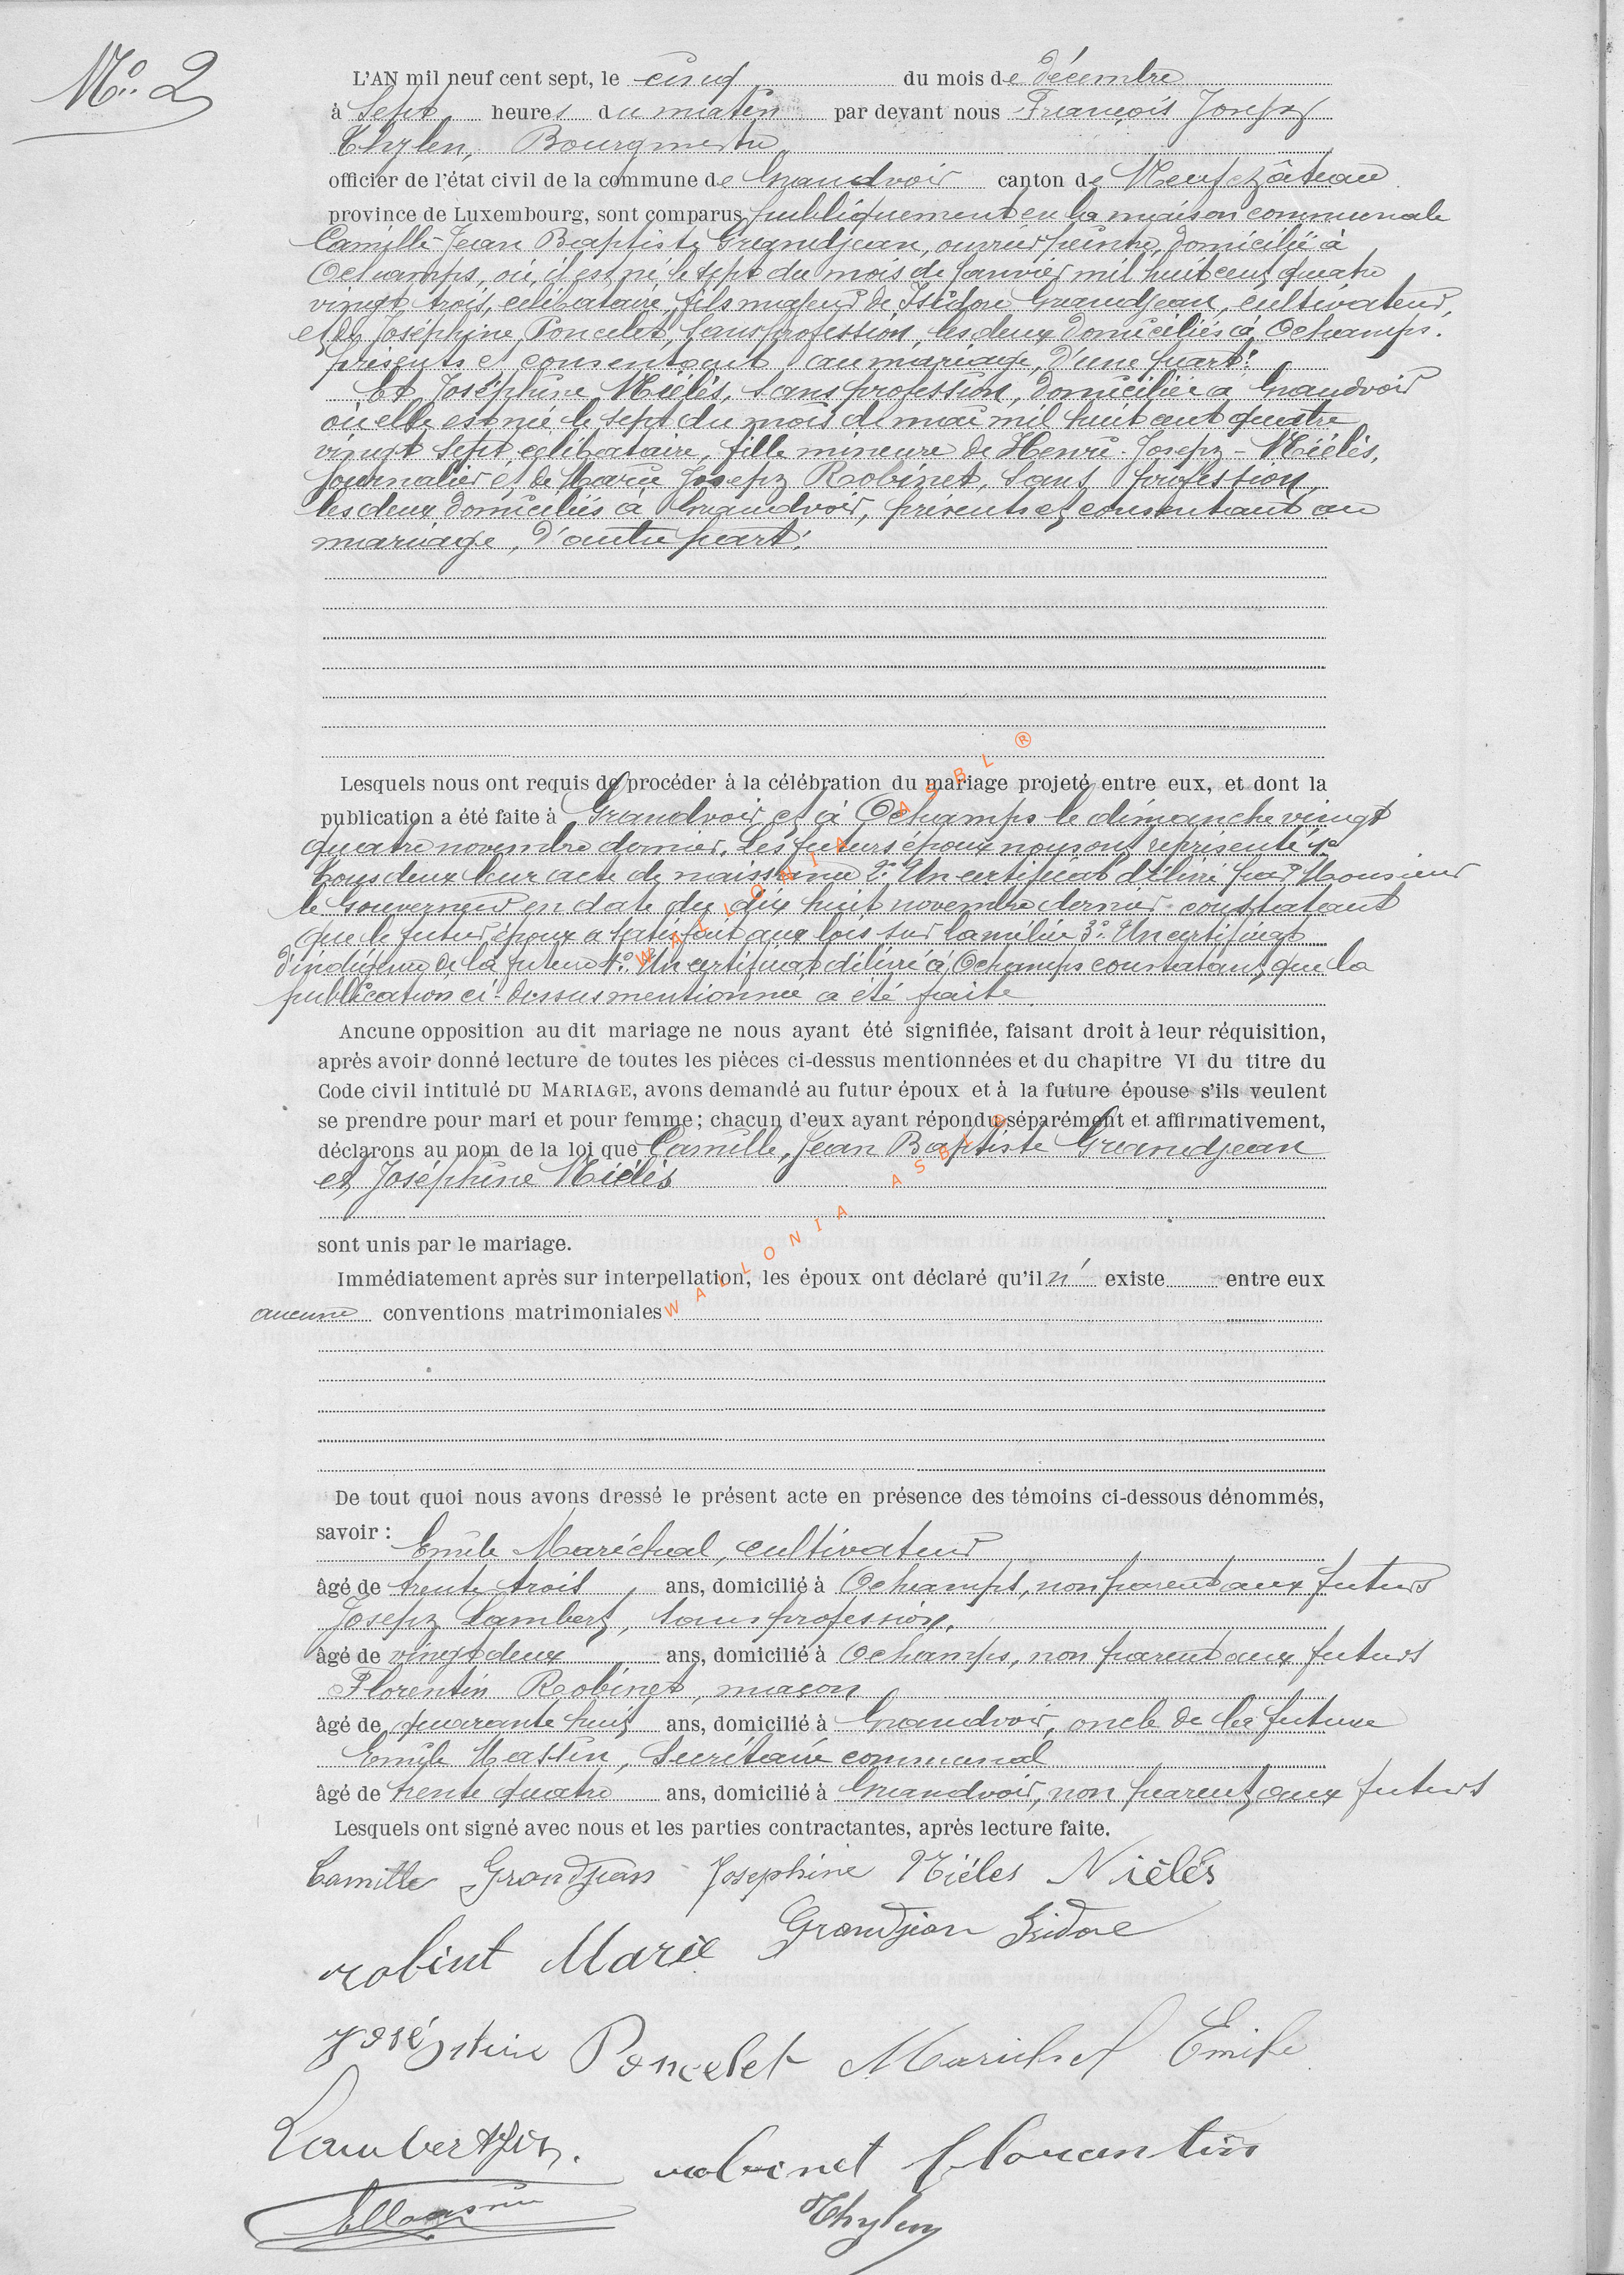 No. 2
L'AN mil neuf cent sept, le cinq du mois de décembre
à Sept heures du matin par devant nous François Joseph
Thylen, Bourgmestre
officier de l'état civil de la commune de Grandvoir canton de Neufchâteau
province de Luxembourg, sont comparus publiquement en la maison communale
Camille-Jean Baptiste Grandjean, ouvrier peintre, domicilié à
Ochamps, où il est né le sept du mois de Janvier mil huit cent quatre
vingt trois, célibataire, fils majeur de Isidore Grandjean, cultivateur,
et de Joséphine Poncelet, Sans profession, les deux domiciliés à Ochamps.
présents et consentant au mariage, d'une part;
Et Joséphine Niélès, Sans profession, domiciliée a Grandvoir
où elle est née le sept du mois de mai mil huit cent quatre
vingt Sept, célibataire, fille mineure de Henri-Joseph-Niélès,
Journalier et de Marie Joseph Robinet, Sans profession,
les deux domiciliés à Grandvoir, présents et consentant au
mariage, d'autre part;
Lesquels nous ont requis de procéder à la célébration du mariage projeté entre eux, et dont la
publication a été faite à Grandvoir et à Ochamps le dimanche vingt
quatre novembre dernier. Les futurs époux nous ont représenté 1°
tous deux leur acte de naissance 2° Un certificat délivré par Monsieur
le Gouverneur en date du dix huit novembre dernier constatant
que le futur époux a satisfait aux lois sur la milice 3° Un certificat
d'indigence de la future 4° Un certificat délivré à Ochamps constatant que la
publication ci-dessus mentionnée a été faite.
Ancune opposition au dit mariage ne nous ayant été signifiée, faisant droit à leur réquisition,
après avoir donné lecture de toutes les pièces ci-dessus mentionnées et du chapitre VI du titre du
Code civil intitulé DU MARIAGE, avons demandé au futur époux et à la future épouse s'ils veulent
se prendre pour mari et pour femme; chacun d'eux ayant répondu séparément et affirmativement,
déclarons au nom de la loi que Camille, Jean Baptiste Grandjean
et Joséphine Niélès
sont unis par le mariage.
Immédiatement après sur interpellation, les époux ont déclaré qu'il n' existe entre eux
aucune conventions matrimoniales
De tout quoi nous avons dressé le présent acte en présence des témoins ci-dessous dénommés,
savoir :
Emile Maréchal, cultivateur
âgé de trente trois ans, domicilié à Ochamps, non parent aux futurs
Joseph Lambert, Sans profession,
âgé de vingt deux ans, domicilié à Ochamps, non parent aux futurs
Florentin Robinet, maçon
âgé de quarante huit ans, domicilié à Grandvoir, oncle de la future
Emile Massin, Secrétaire communal
âgé de trente quatre ans, domicilié à Grandvoir, non parent aux futurs
Lesquels ont signé avec nous et les parties contractantes, après lecture faite.
Camille Grandjean Josephine Niéles Niélés
robint Marie Grandjean Isidore
Joséphine Poncelet Maréchal Emile
Lambert Jos.
robinet florentin
EMassin
Thylen
WALLONIA ASBL ®
WALLONIA ASBL ®